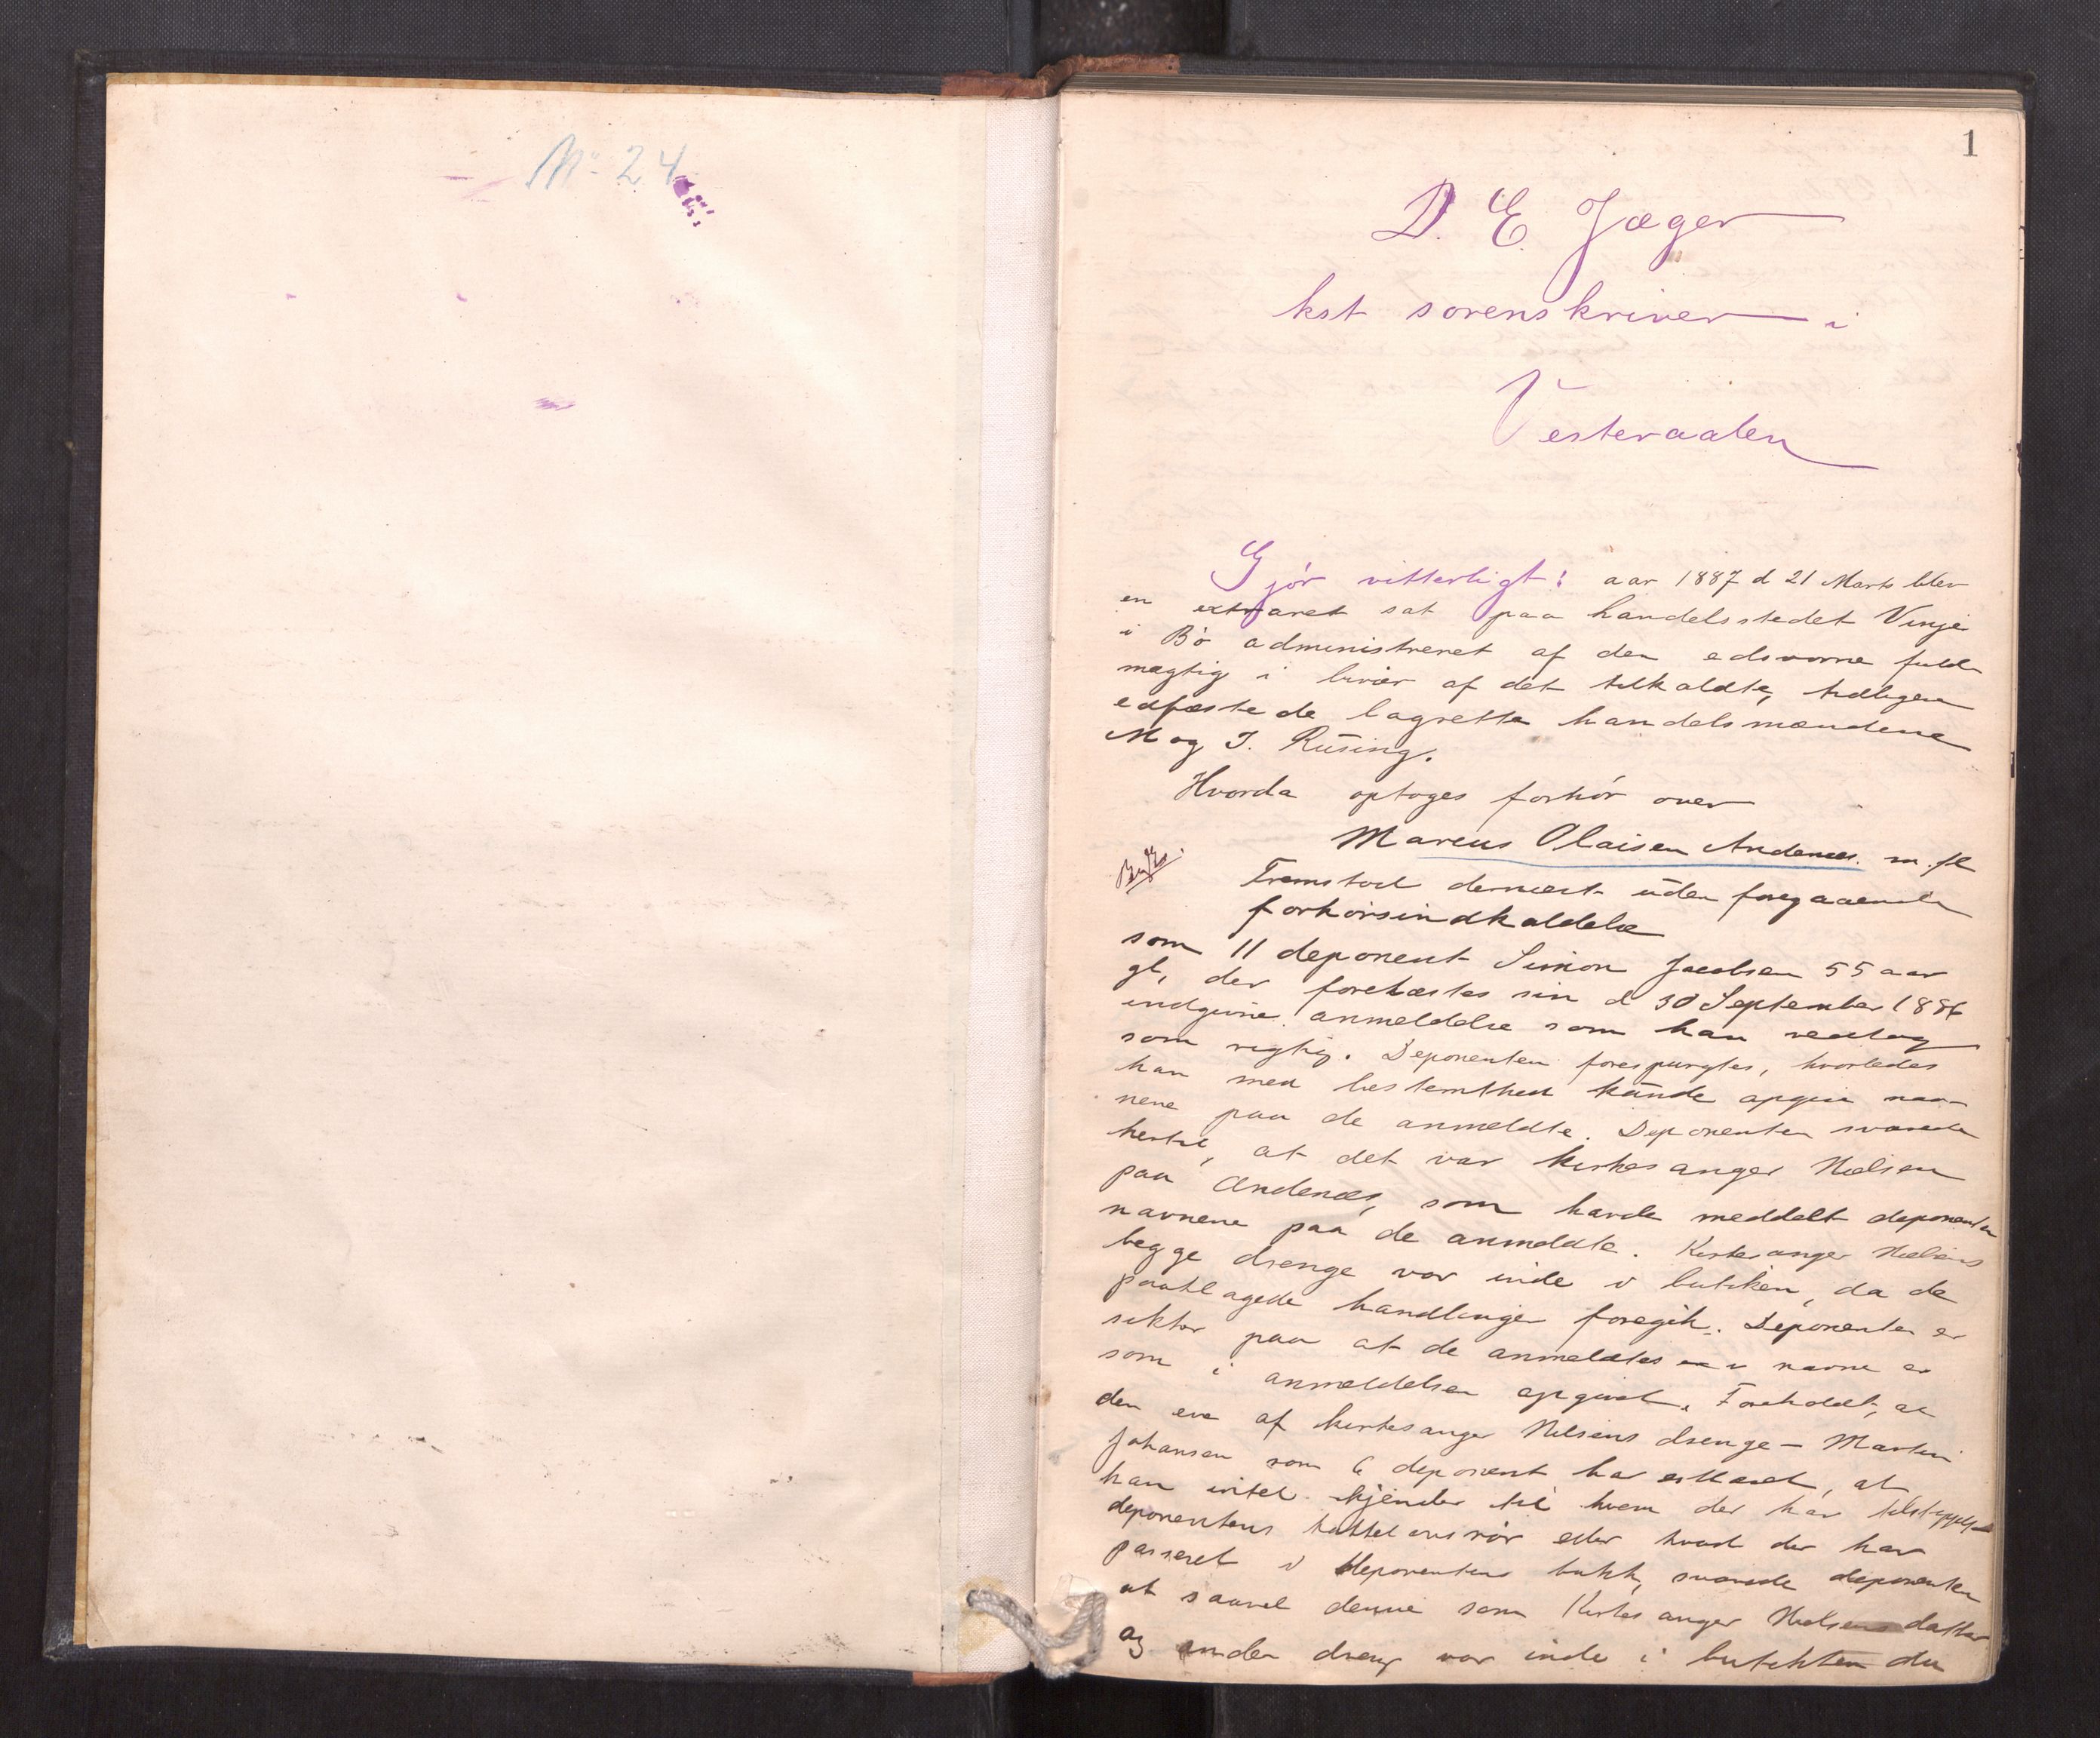 No 24
1
D. E. Jæger
kst sorenskriver i
Vesteraalen
Gjör vitterligt: aar 1887 d 21 Marts blev
en extraret sat paa handelsstedet Vinje
i Bö administreret af den edsvorne fuld
mægtig i livær af det tilkaldte, tidligere
edfæstede lagrette handelsmændene
M og J. Rüsing.
Hvorda optoges forhör over
Marcus Olaisen Andenæs m. fl
Fremstod dernæst uden foregaaende
forhörsindkaldelse
som 11 deponent Simon Jacobsen 55 aar
gl, der forelæstes sin d 30 September 1886
indgivne anmeldelse som han vedtog
som rigtig. Deponenten forespurgtes, hvorledes
han med bestemthed kunde opgive nav-
nene paa de anmeldte. Deponenten svarede
hertil, at det var kirkesanger Nielsen
paa Andenæs, som havde meddelt deponenten
navnene paa de anmeldte. Kirkesanger Nielsens
begge drenge var inde i butiken, da de
paaklagede handlinger foregik. Deponenten er
sikker paa at de anmeldtes navne er
som i anmeldelsen opgivet. Foreholdt, at
den ene af kirkesanger Nilsens drenge - Martin
Johansen som 6 deponent har erklæret, at
han intet kjender til hvem der har tilstoppet
deponentens kakkelovnsrör eller hvad der har
passeret i deponentens butik, svarede deponenten
at saavel denne som Kirkesanger Nielsens datter
og anden dreng var inde i butikken da